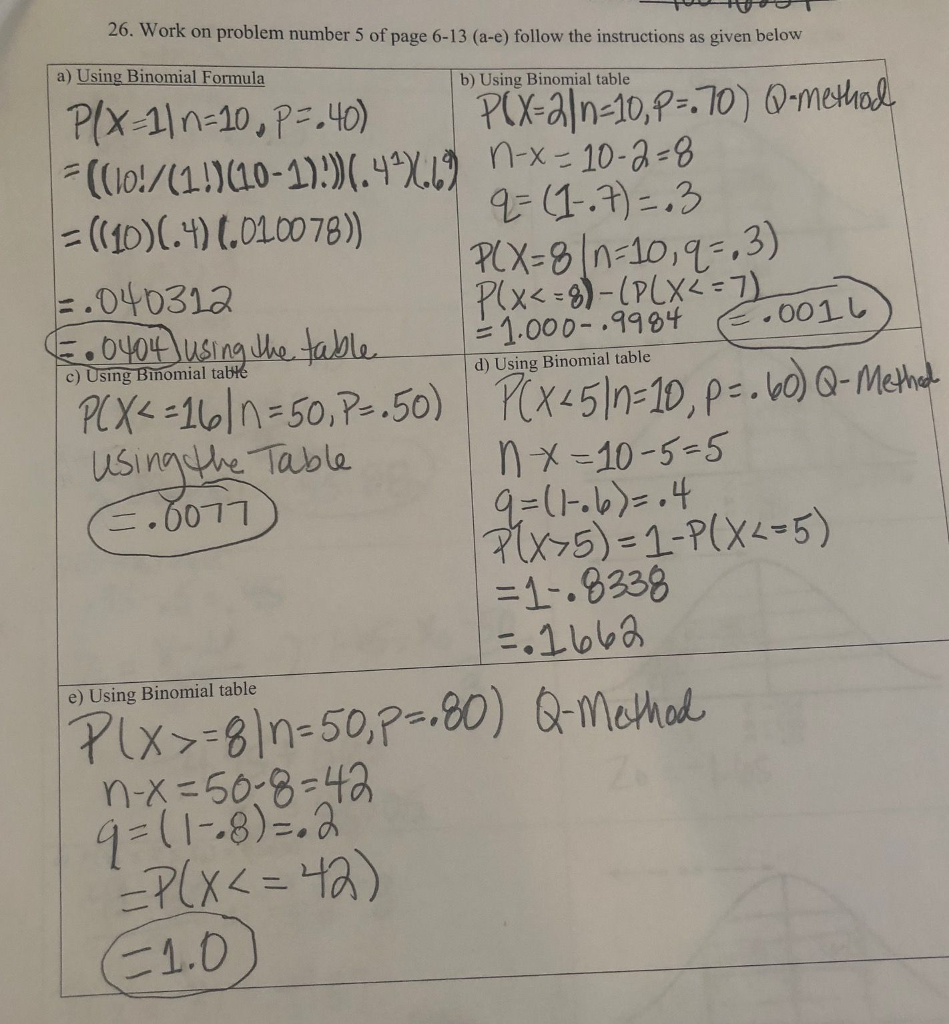 26. Work on problem number 5 of page 6-13 (a-e) follow the instructions as given below
a) Using Binomial Formula
P(X=1|n=10, P=.40)
=((10!/(1!)(10-1)!))(.4^1)(.6^9)
=((10)(.4)(.010078))
=.040312
=.0404 using the table
b) Using Binomial table
P(X=2|n=10,P=.70) Q-method
n-x=10-2=8
q=(1-.7)=.3
P(X=8|n=10,q=.3)
P(X<=8)-(P(X<=7)
=1.000-.9984 =.0016
c) Using Binomial table
P(X<=16|n=50,P=.50)
using the Table
=.0077
d) Using Binomial table
P(X<5|n=10,p=.60) Q-Method
n-x=10-5=5
q=(1-.6)=.4
P(X>5)=1-P(X<=5)
=1-.8338
=.1662
e) Using Binomial table
P(X>=8|n=50,p=.80) Q-Method
n-x=50-8=42
q=(1-.8)=.2
=P(X<=42)
=1.0